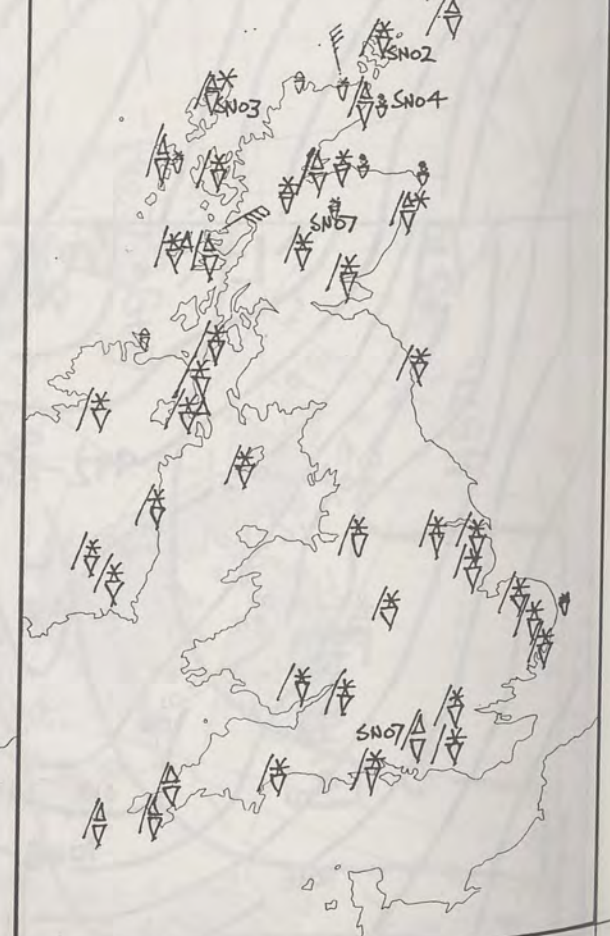 SN02
SN03
SN04
SN07
SN07